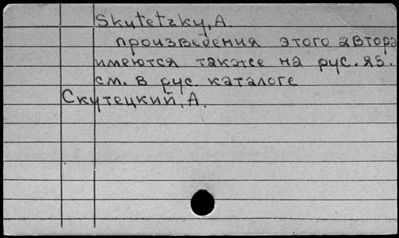 Skutetzky, A.
произведения этого автора
имеются также на рус. яз.
см. в рус. каталоге
Скутецкий, А.